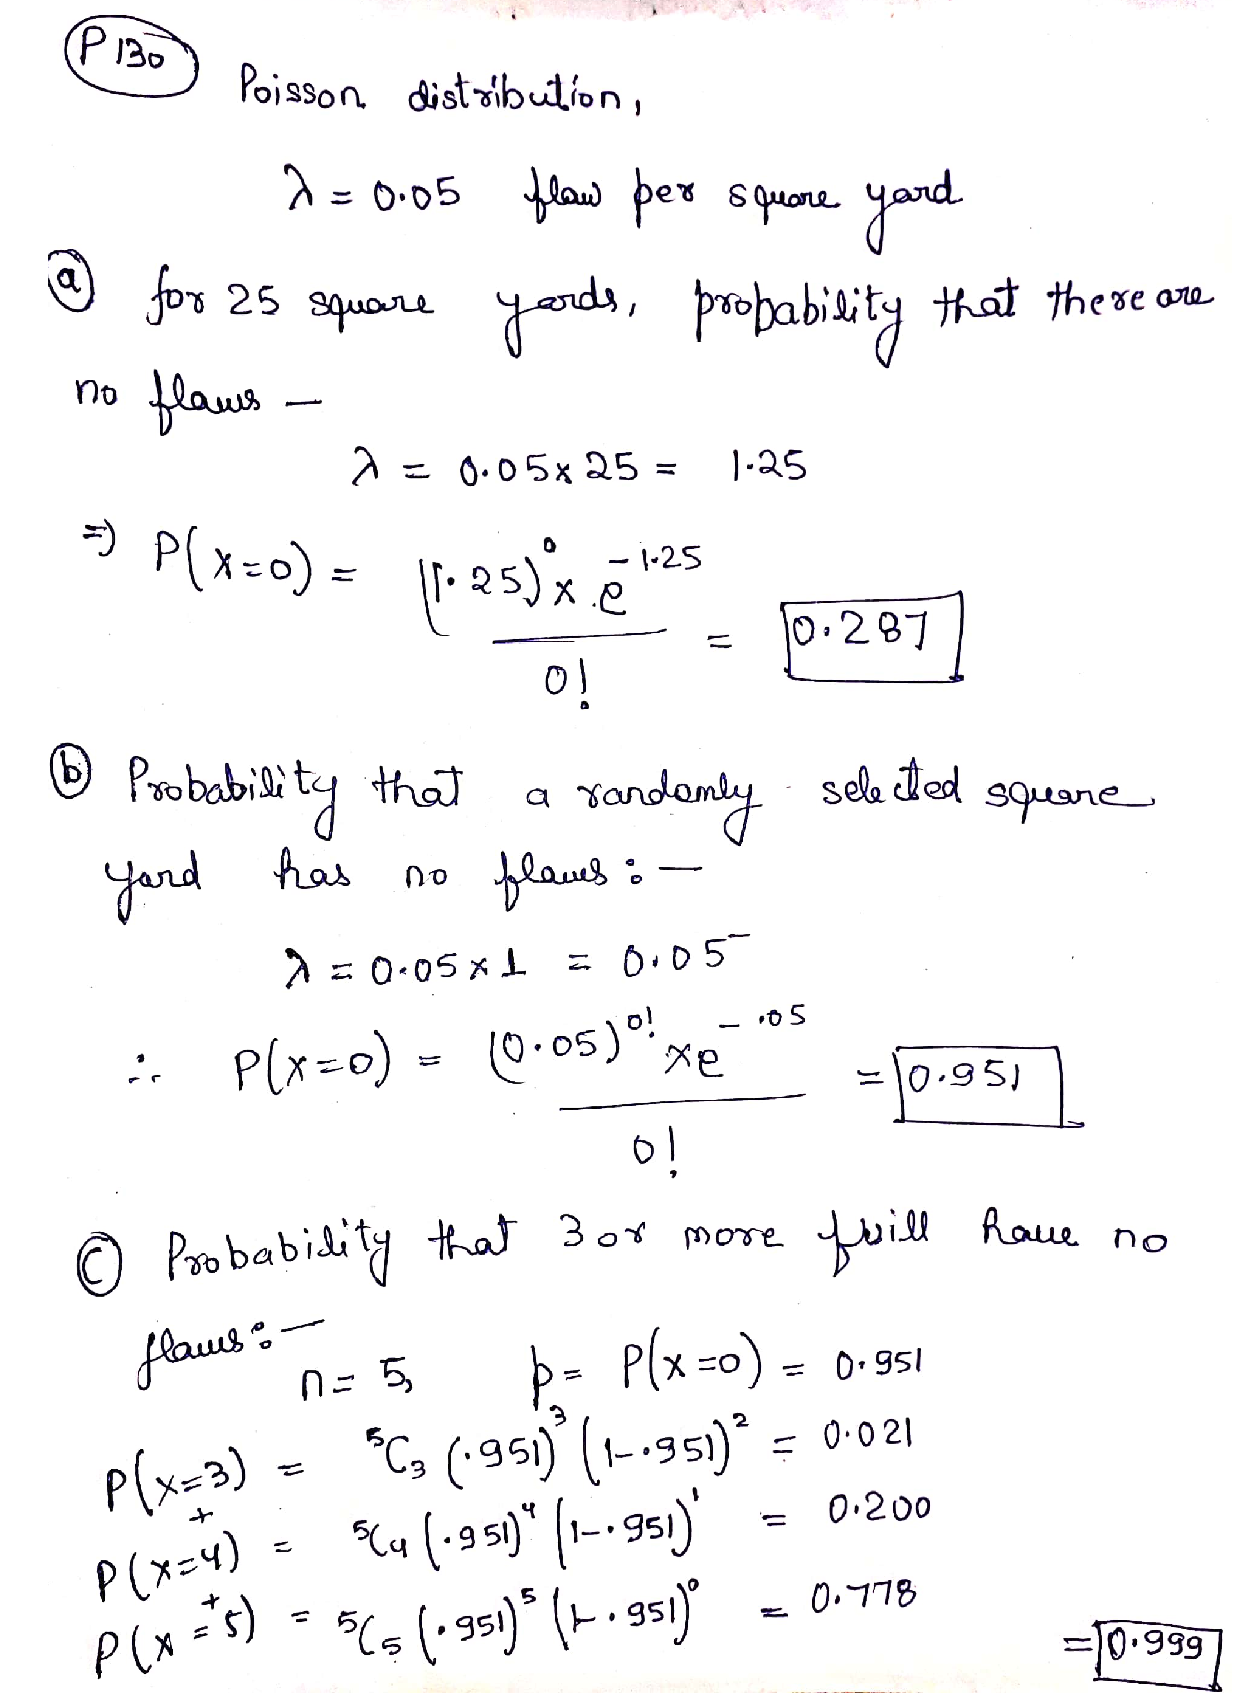 P 130
Poisson distribution,
λ = 0.05 flaw per square yard
(a) for 25 square yards, probability that there are
no flaws —
λ = 0.05 x 25 = 1.25
⇒ P(x=0) = (1.25)⁰ x e^-1.25 / 0! = 0.287
(b) Probability that a randomly selected square
yard has no flaws : —
λ = 0.05 x 1 = 0.05
∴ P(x=0) = (0.05)^0! x e^-.05 / 0! = 0.951
(c) Probability that 3 or more will have no
flaws : —
n = 5, p = P(x=0) = 0.951
P(x=3) = ⁵C₃ (.951)³ (1-.951)² = 0.021
+
P(x=4) = ⁵C₄ (.951)⁴ (1-.951)¹ = 0.200
+
P(x=5) = ⁵C₅ (.951)⁵ (1-.951)⁰ = 0.778
= 0.999